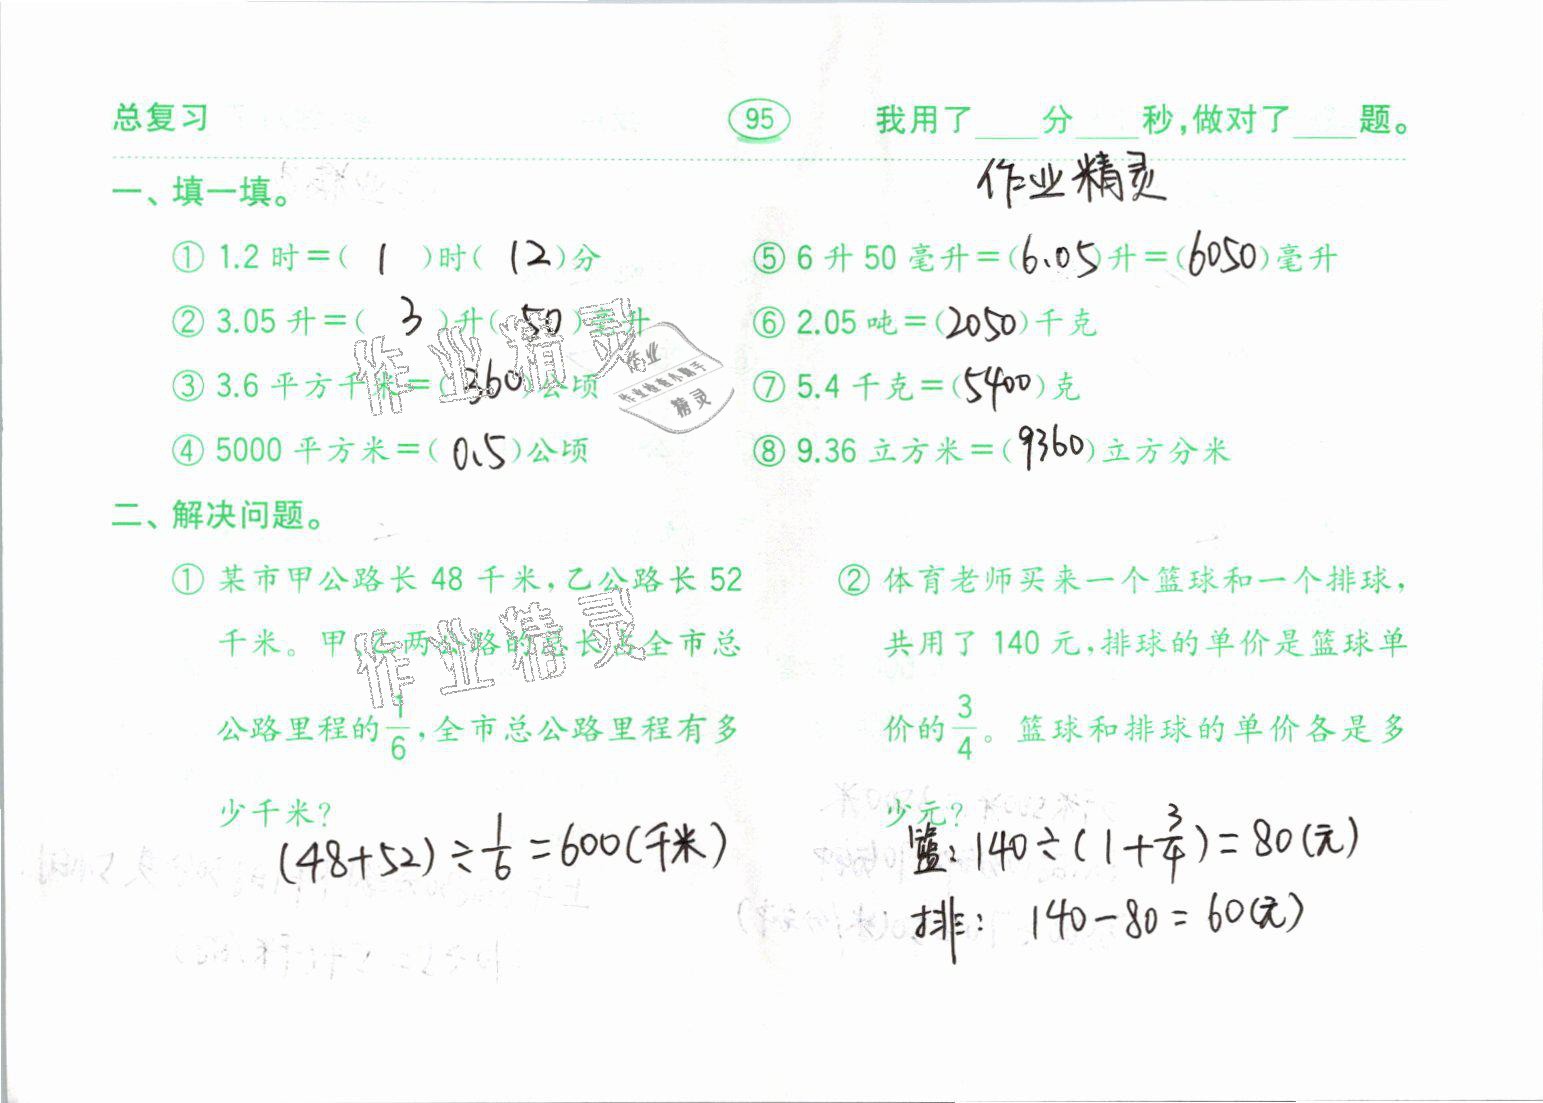 总复习 95 我用了____分____秒,做对了____题。
作业精灵
一、填一填。
① 1.2 时=( 1 )时( 12 )分
② 3.05 升=( 3 )升( 50 )毫升
③ 3.6 平方千米=( 360 )公顷
④ 5000 平方米=( 0.5 )公顷
⑤ 6 升 50 毫升=( 6.05 )升=( 6050 )毫升
⑥ 2.05 吨=( 2050 )千克
⑦ 5.4 千克=( 5400 )克
⑧ 9.36 立方米=( 9360 )立方分米
作业精灵
作业
作业检查小助手
精灵
二、解决问题。
① 某市甲公路长 48 千米,乙公路长 52
千米。甲、乙两公路的总长占全市总
公路里程的1/6,全市总公路里程有多
少千米?
(48+52)÷1/6=600(千米)
作业精灵
② 体育老师买来一个篮球和一个排球,
共用了 140 元,排球的单价是篮球单
价的3/4。篮球和排球的单价各是多
少元?
篮:140÷(1+3/4)=80(元)
排: 140-80=60(元)